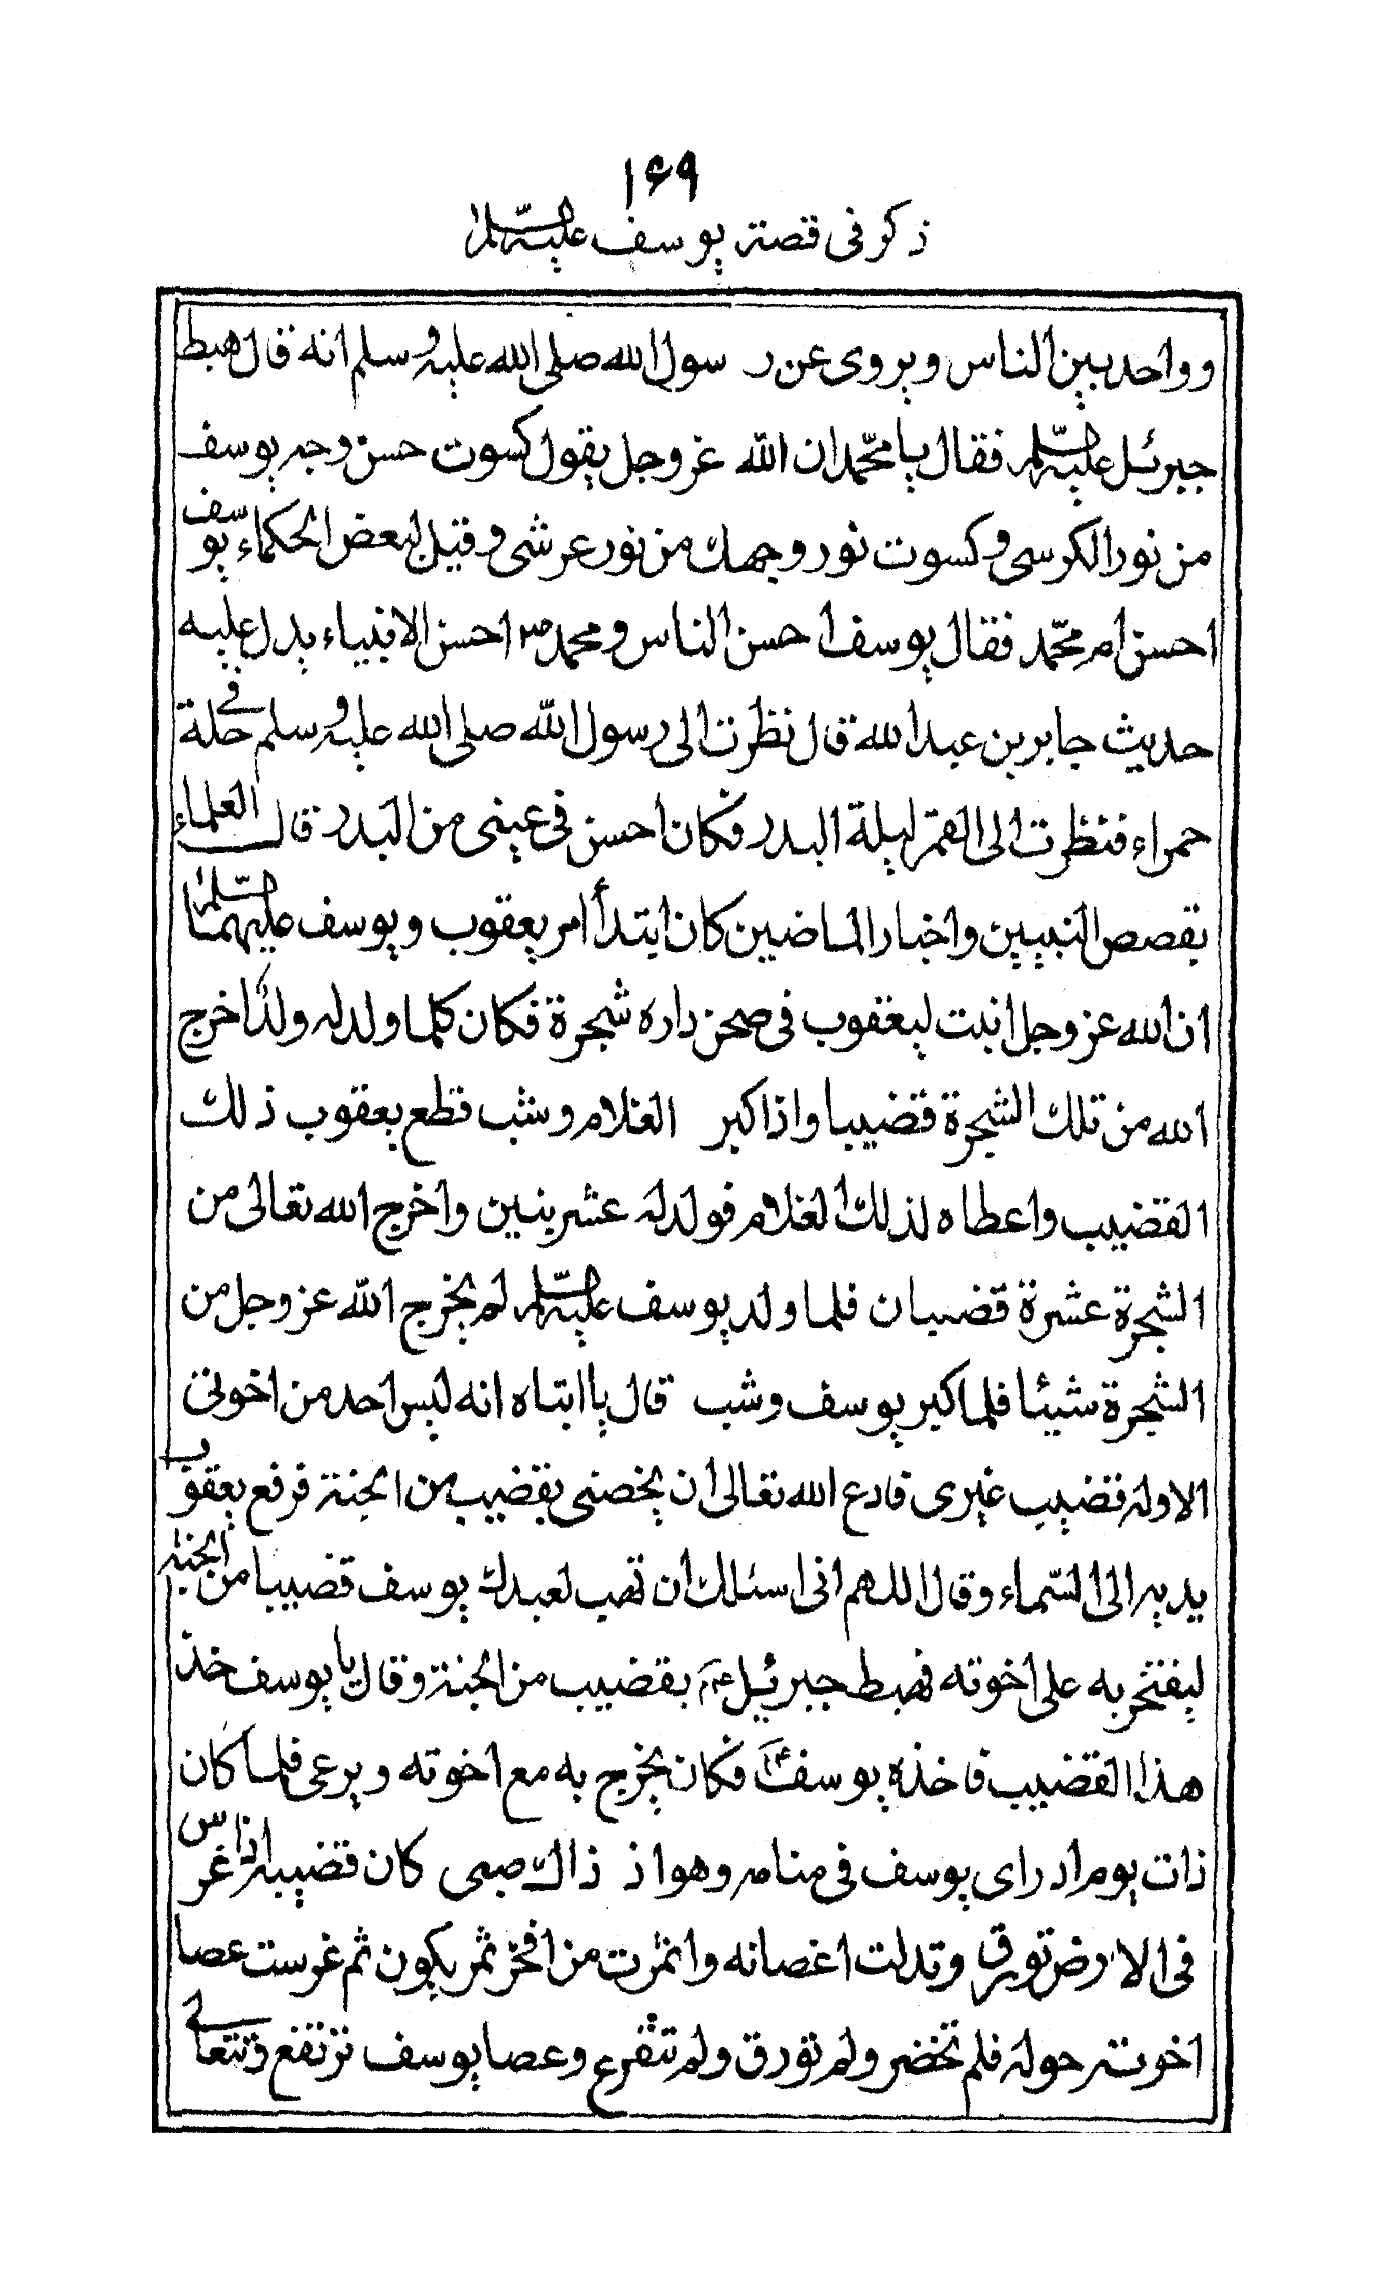 ۱۶۹
ذكر فى قصة يوسف عليه السلام
وواحد بين الناس ويروى عن رسول الله صلى الله عليه وسلم انه قال هبط
جبرئل عليه السلم فقال يا محمّد ان الله عزوجل يقول كسوت حسن وجه يوسف
من نور الكرسى وكسوت نور وجهك من نور عرشى وقيل لبعض الحكماء يوسف
احسن ام محمّد فقال يوسف احسن الناس ومحمد ص احسن الانبياء يدل عليه
حديث جابر بن عبد الله قال نظرت الى رسول الله صلى الله عليه وسلم فى حلة
حمراء فنظرت الى القمر ليلة البدر فكان احسن فى عينى من البدر قالت العلماء
بقصص النبيين واخبار الماضين كان ابتدأ امر يعقوب ويوسف عليهما السلام
ان الله عزوجل انبت ليعقوب فى صحن داره شجرة فكان كلما ولد له ولد اخرج
الله من تلك الشجرة قضيبا واذا كبر الغلام وشب قطع يعقوب ذلك
القضيب واعطاه لذلك الغلام فولد له عشر بنين واخرج الله تعالى من
الشجرة عشرة قضبان فلما ولد يوسف عليه السلم لم يخرج الله عزوجل من
الشجرة شيئا فلما كبر يوسف وشب قال يا ابتاه انه ليس احد من اخوتى
الا وله قضيب غيرى فادع الله تعالى ان يخصنى بقضيب من الجنة فرفع يعقوب
يديه الى السّماء وقال اللهم انى اسئلك ان تهب لعبدك يوسف قضيبا من الجنة
ليفتخر به على اخوته فهبط جبرئيل ع م بقضيب من الجنة وقال يا يوسف خذ
هذا القضيب فاخذه يوسف ع م فكان يخرج به مع اخوته ويرعى فلما كان
ذات يوم اذ راى يوسف فى منامه وهو اذ ذاك صبى كان قضيبه اذا غرس
فى الارض تورق وتدلت اغصانه واثمرت من افخر ثمر يكون ثم غرست عصا
اخوته حوله فلم تخضر ولم تورق ولم تتفرع وعصا يوسف ترتفع وتتعالى